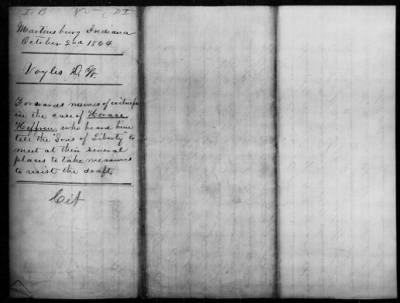 Martinsburg Indiana
October 2nd 1864
Voyles D. W.
Forwards names of witnesses
in the case of Horace
Heffren who heard him
tell the Sons of Liberty to
meet at their several
places to take measures
to resist the draft
Cit